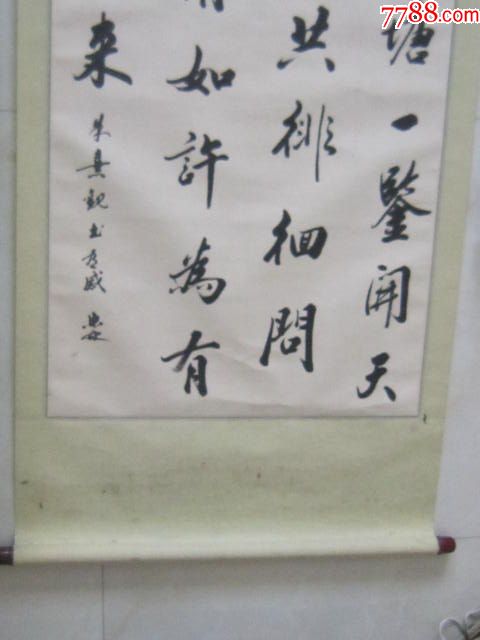 7788.com
塘一鑒開天
共徘徊問
如許為有
来
朱熹觀書有感